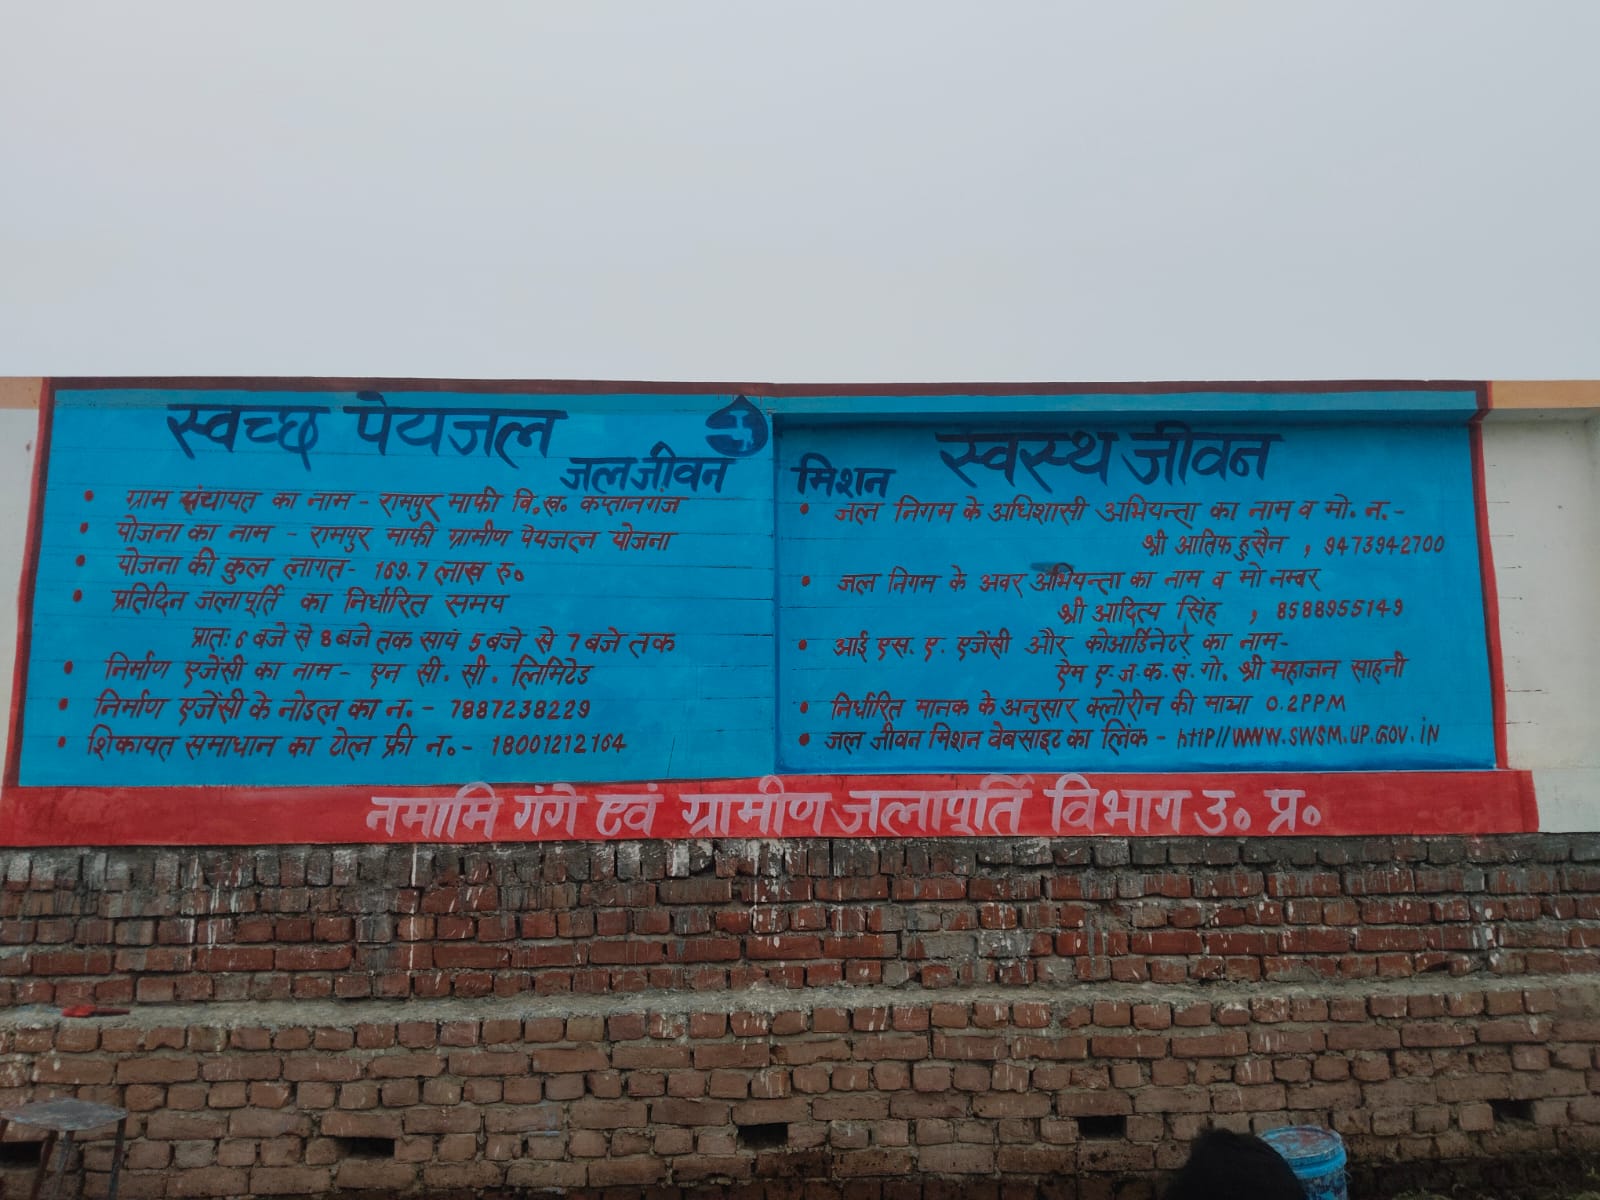 स्वच्छ पेयजल
जल जीवन
ग्राम पंचायत का नाम - रामपुर माफी वि.ख. कप्तानगंज
योजना का नाम - रामपुर माफी ग्रामीण पेयजल योजना
योजना की कुल लागत - 169.7 लाख रु०
प्रतिदिन जलापूर्ति का निर्धारित समय
प्रात: 6 बजे से 8 बजे तक सायं 5 बजे से 7 बजे तक
निर्माण एजेंसी का नाम - एन सी. सी. लिमिटेड
निर्माण एजेंसी के नोडल का न. - 7887238229
शिकायत समाधान का टोल फ्री न.- 18001212164
स्वस्थ जीवन
मिशन
जल निगम के अधिशासी अभियन्ता का नाम व मो. न.-
श्री आतिफ हुसैन , 9473942700
जल निगम के अवर अभियन्ता का नाम व मो नम्बर
श्री आदित्य सिंह , 8588955149
आई एस. ए. एजेंसी और कोआर्डिनेटर का नाम-
ऐम ए. ज. क. स. गो. श्री महाजन साहनी
निर्धारित मानक के अनुसार क्लोरीन की मात्रा 0.2PPM
जल जीवन मिशन वेबसाइट का लिंक - httP//WWW.SWSM.UP.GOV.iN
नमामि गंगे एवं ग्रामीण जलापूर्ति विभाग उ० प्र०